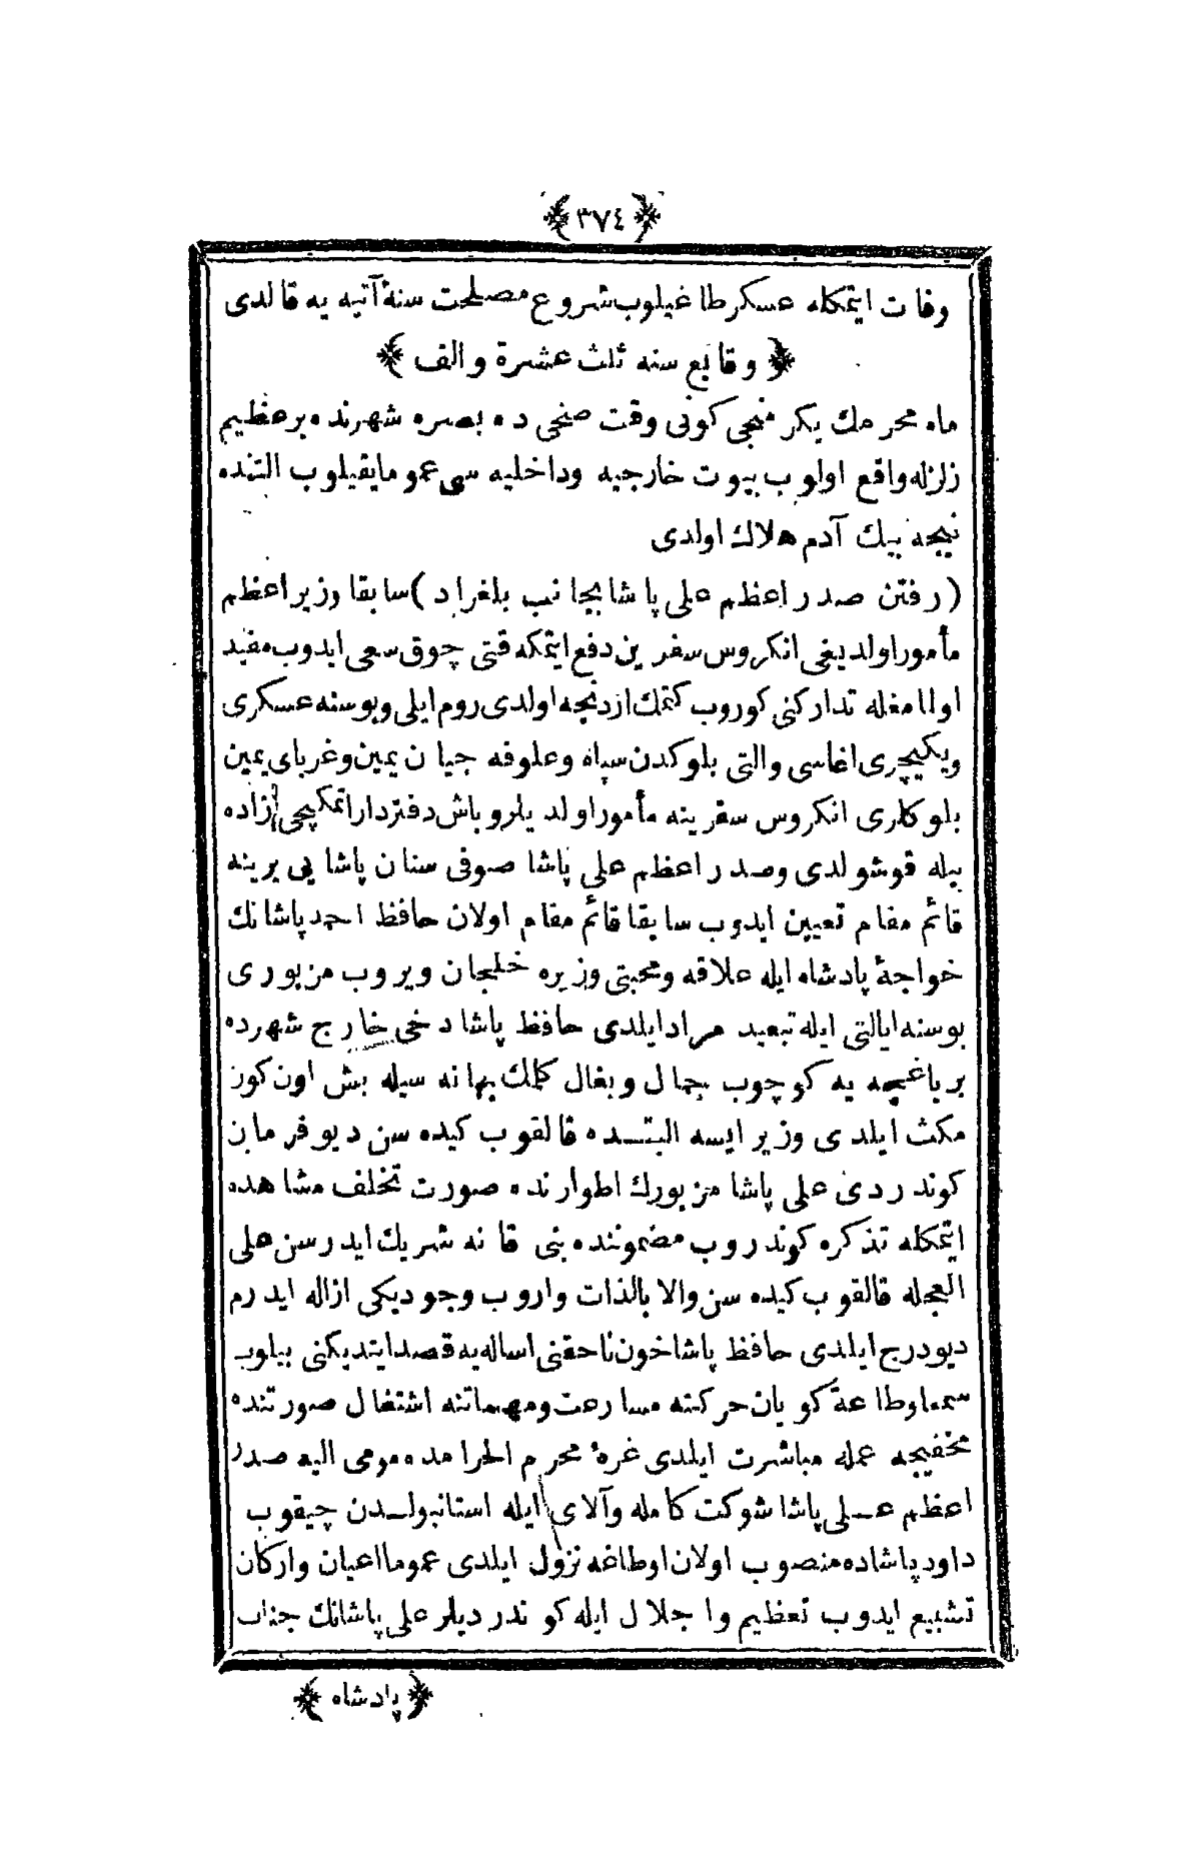 ﴿٣٧٤﴾
وفات ایتمکله عسکر طاغیلوب شروع مصلحت سنۀ آتیه یه قالدی
﴿وقایع سنه ثلث عشرة والف﴾
ماه محرمك یکرمنجی کونی وقت ضحی ده بصره شهرنده برعظیم
زلزله واقع اولوب بیوت خارجیه وداخلیه سی عموما یقیلوب التنده
نیجه بیك آدم هلاك اولدی
(رفتن صدر اعظم علی پاشا بجانب بلغراد) سابقا وزیر اعظم
مأمور اولدیغی انکروس سفرین دفع ایتمکه قتی چوق سعی ایدوب مفید
اولمامغله تدارکنی کوروب کتمك ازدنجه اولدی روم ایلی وبوسنه عسکری
ویکیچری اغاسی والتی بلوکدن سپاه وعلوفه جیان یمین وغربای یمین
بلوکلری انکروس سفرینه مأمور اولدیلر وباش دفتردار اتمکچی زاده
بیله قوشولدی وصدر اعظم علی پاشا صوفی سنان پاشایی یرینه
قائم مقام تعیین ایدوب سابقا قائم مقام اولان حافظ احمد پاشانك
خواجۀ پادشاه ایله علاقه ومحبتی وزیره خلجان ویروب مزبوری
بوسنه ایالتی ایله تبعید مراد ایلدی حافظ پاشا دخی خارج شهرده
بر باغچه یه کوچوب جمال وبغال کلمك بهانه سیله بش اون کون
مکث ایلدی وزیر ایسه البتــده قالقوب کیده سن دیو فرمان
کوندردی علی پاشا مزبورك اطوارنده صورت تخلف مشاهده
ایتمکله تذکره کوندروب مضموننده بنی قانه شریك ایدرسن علی
العجله قالقوب کیده سن والا بالذات واروب وجودیکی ازاله ایدرم
دیو درج ایلدی حافظ پاشا خون ناحقنی اساله یه قصد ایتدیکنی بیلوب
سمعا وطاعة کویان حرکتنه مسارعت ومهماتنه اشتغال صورتنده
مخفیجه عمله مباشرت ایلدی غرۀ محرم الحرامده مومی الیه صدر
اعظم عــلی پاشا شوکت کامله وآلای ایله استانبولــدن چیقوب
داود پاشاده منصوب اولان اوطاغه نزول ایلدی عموما اعیان وارکان
تشییع ایدوب تعظیم واجلال ایله کوندردیلر علی پاشانك جناب
﴿پادشاه﴾